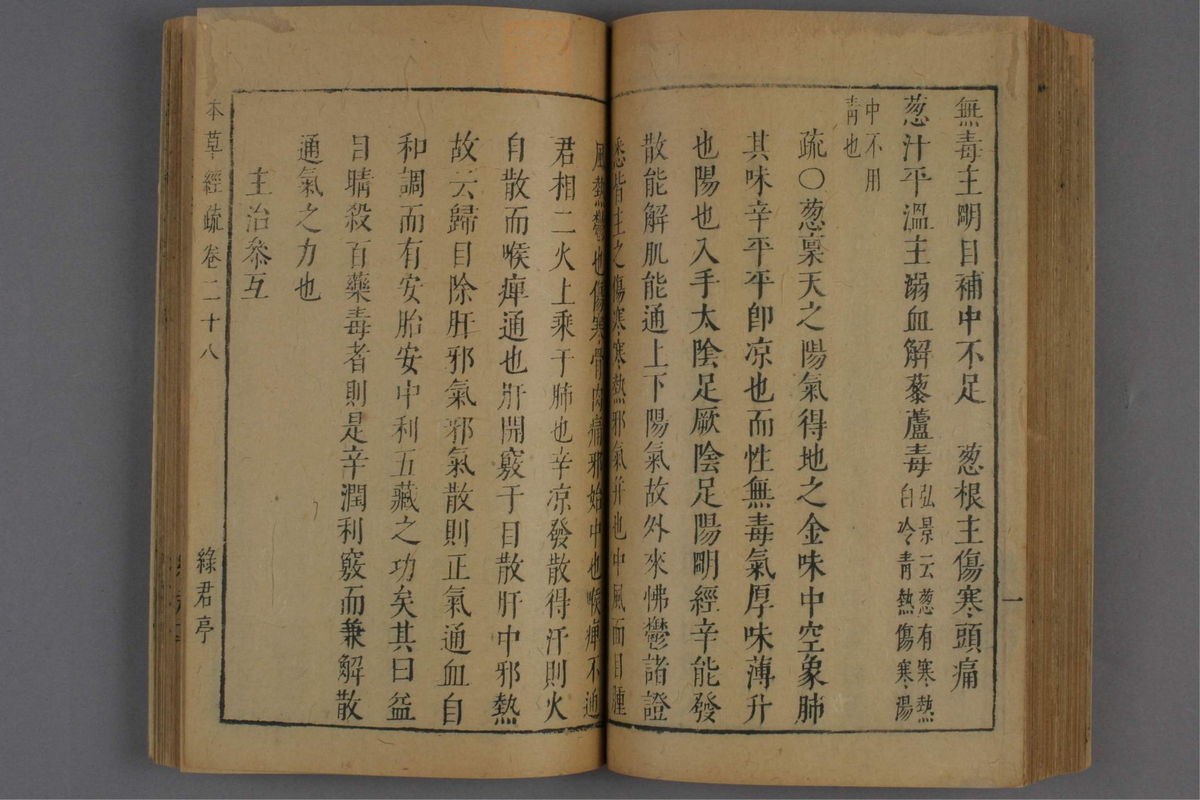 無毒主明目補中不足　葱根主傷寒頭痛
葱汁平溫主溺血解藜蘆毒弘景云葱有寒熱
白冷青熱傷寒湯
中不用
青也
疏〇葱稟天之陽氣得地之金味中空象肺
其味辛平平卽凉也而性無毒氣厚味薄升
也陽也入手太陰足厥陰足陽明經辛能發
散能解肌能通上下陽氣故外來怫鬱諸證
悉皆主之傷寒寒熱邪氣并也中風面目腫
風熱鬱也傷寒骨肉痛邪始中也喉痺不通
君相二火上乘于肺也辛凉發散得汗則火
自散而喉痺通也肝開竅于目散肝中邪熱
故云歸目除肝邪氣邪氣散則正氣通血自
和調而有安胎安中利五藏之功矣其曰益
目睛殺百藥毒者則是辛潤利竅而兼解散
通氣之力也
主治叅互
本草經疏 卷二十八
綠君亭